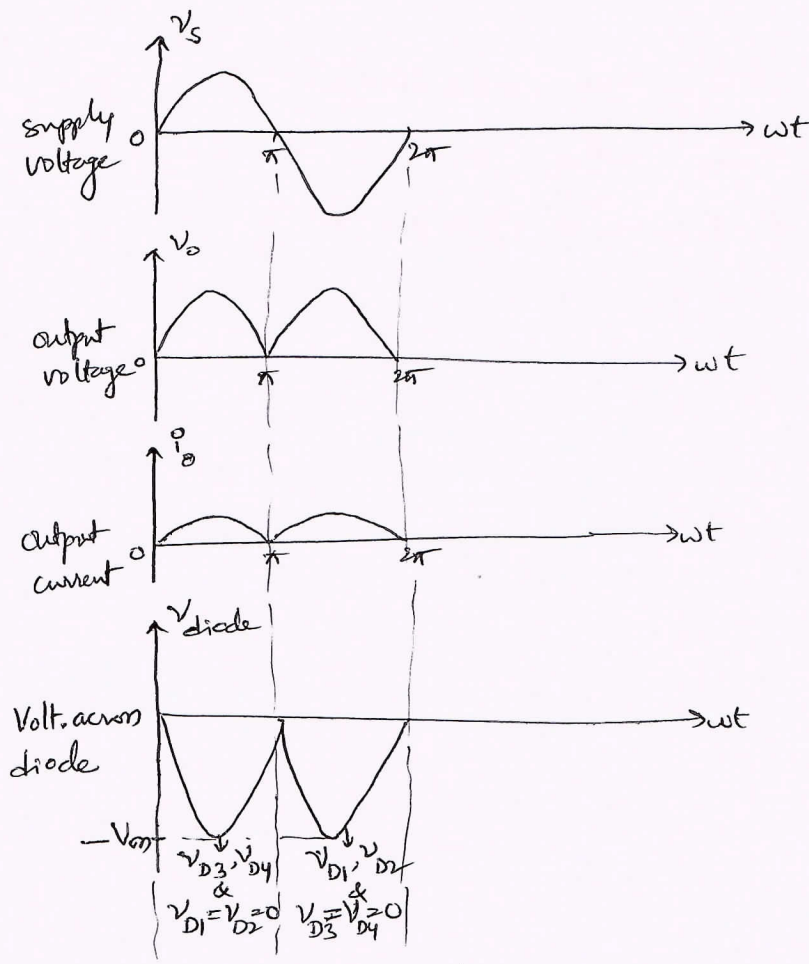 νs
supply
voltage
0
π
2π
ωt
νo
output
voltage
0
π
2π
ωt
io
output
current
0
π
2π
ωt
νdiode
Volt. across
diode
ωt
−Vm
νD3, νD4
&
νD1 = νD2 = 0
νD1, νD2
&
νD3 = νD4 = 0